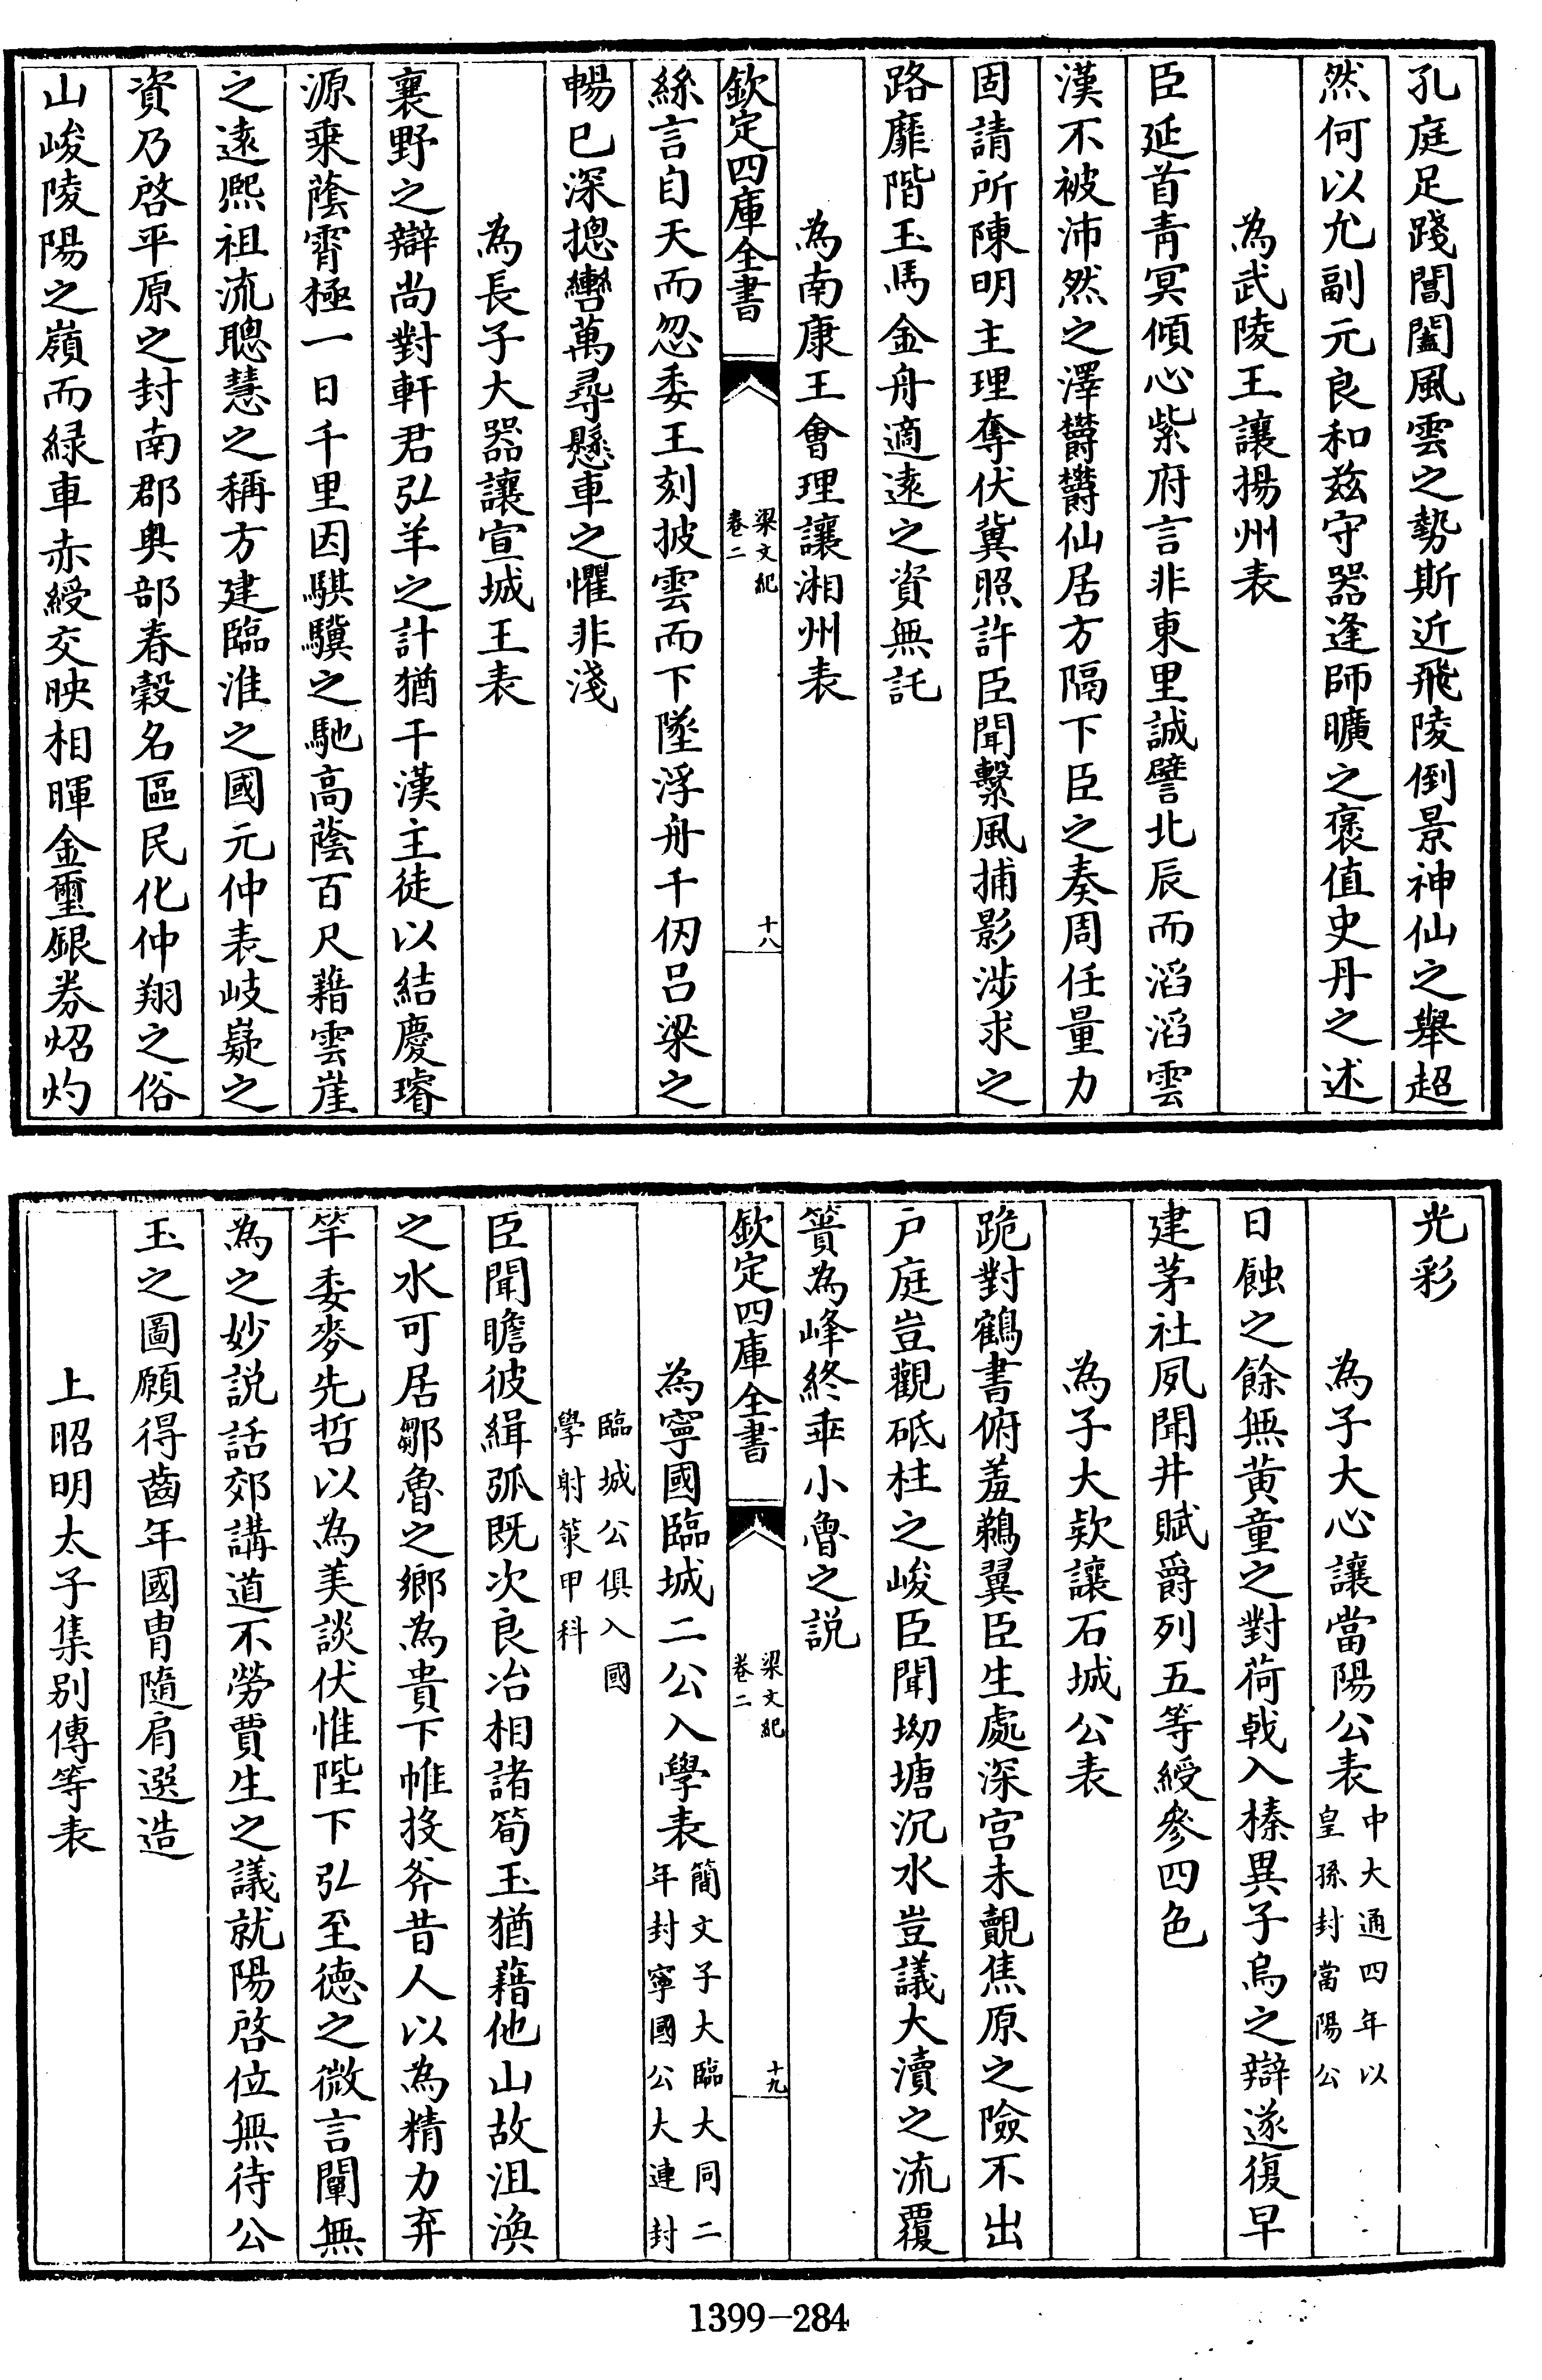 孔庭足踐閶闔風雲之勢斯近飛陵倒景神仙之舉超
然何以允副元良和兹守器逢師曠之褒值史丹之述
為武陵王讓揚州表
臣延首青冥傾心紫府言非東里誠譬北辰而滔滔雲
漢不被沛然之澤欝欝仙居方隔下臣之奏周任量力
固請所陳明主理奪伏冀照許臣聞繫風捕影涉求之
路靡階玉馬金舟適遠之資無託
為南康王會理讓湘州表
欽定四庫全書
梁文紀
卷二
十八
絲言自天而忽委王刻披雲而下墜浮舟千仭呂梁之
暢已深摠轡萬尋懸車之懼非淺
為長子大器讓宣城王表
襄野之辯尚對軒君弘羊之計猶干漢主徒以結慶璿
源乗蔭霄極一日千里因騏驥之馳高蔭百尺藉雲崖
之遠熙祖流聰慧之稱方建臨淮之國元仲表岐嶷之
資乃啓平原之封南郡奥部春穀名區民化仲翔之俗
山峻陵陽之嶺而緑車赤綬交映相暉金璽銀券炤灼
光彩
為子大心讓當陽公表
中大通四年以
皇孫封當陽公
日蝕之餘無黄童之對荷戟入榛異子烏之辯遂復早
建茅社夙聞井賦爵列五等綬參四色
為子大欵讓石城公表
跪對鶴書俯羞鵜翼臣生處深宫未覿焦原之險不出
户庭豈觀砥柱之峻臣聞坳塘沉水豈議大瀆之流覆
簣為峰終乖小魯之説
欽定四庫全書
梁文紀
卷二
十九
為寧國臨城二公入學表
簡文子大臨大同二
年封寧國公大連封
臨城公俱入國
學射策甲科
臣聞瞻彼緝弧既次良冶相諸筍玉猶藉他山故沮渙
之水可居鄒魯之鄉為貴下帷投斧昔人以為精力弃
竿委麥先哲以為美談伏惟陛下弘至徳之微言闡無
為之妙説話郊講道不勞賈生之議就陽啓位無待公
玉之圖願得齒年國胄隨肩選造
上昭明太子集别傳等表
1399-284